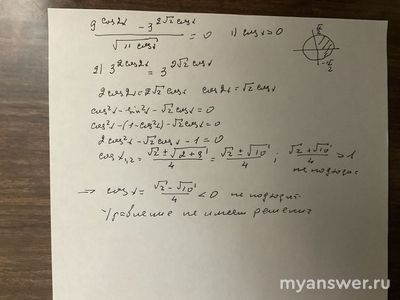 9^cos2x - 3^2√2cosx / √11cosx = 0 1) cosx>0 π/2 -π/2
2) 3^2cos2x = 3^2√2cosx
2cos2x=2√2cosx cos2x=√2cosx
cos²x-sin²x-√2cosx=0
cos²x-(1-cos²x)-√2cosx=0
2cos²x-√2cosx-1=0
cosx1,2=√2±√2+8/4=√2±√10/4; √2+√10/4>1
не подходит
⇒ cosx=√2-√10/4<0 не подходит
Уравнение не имеет решений
myanswer.ru